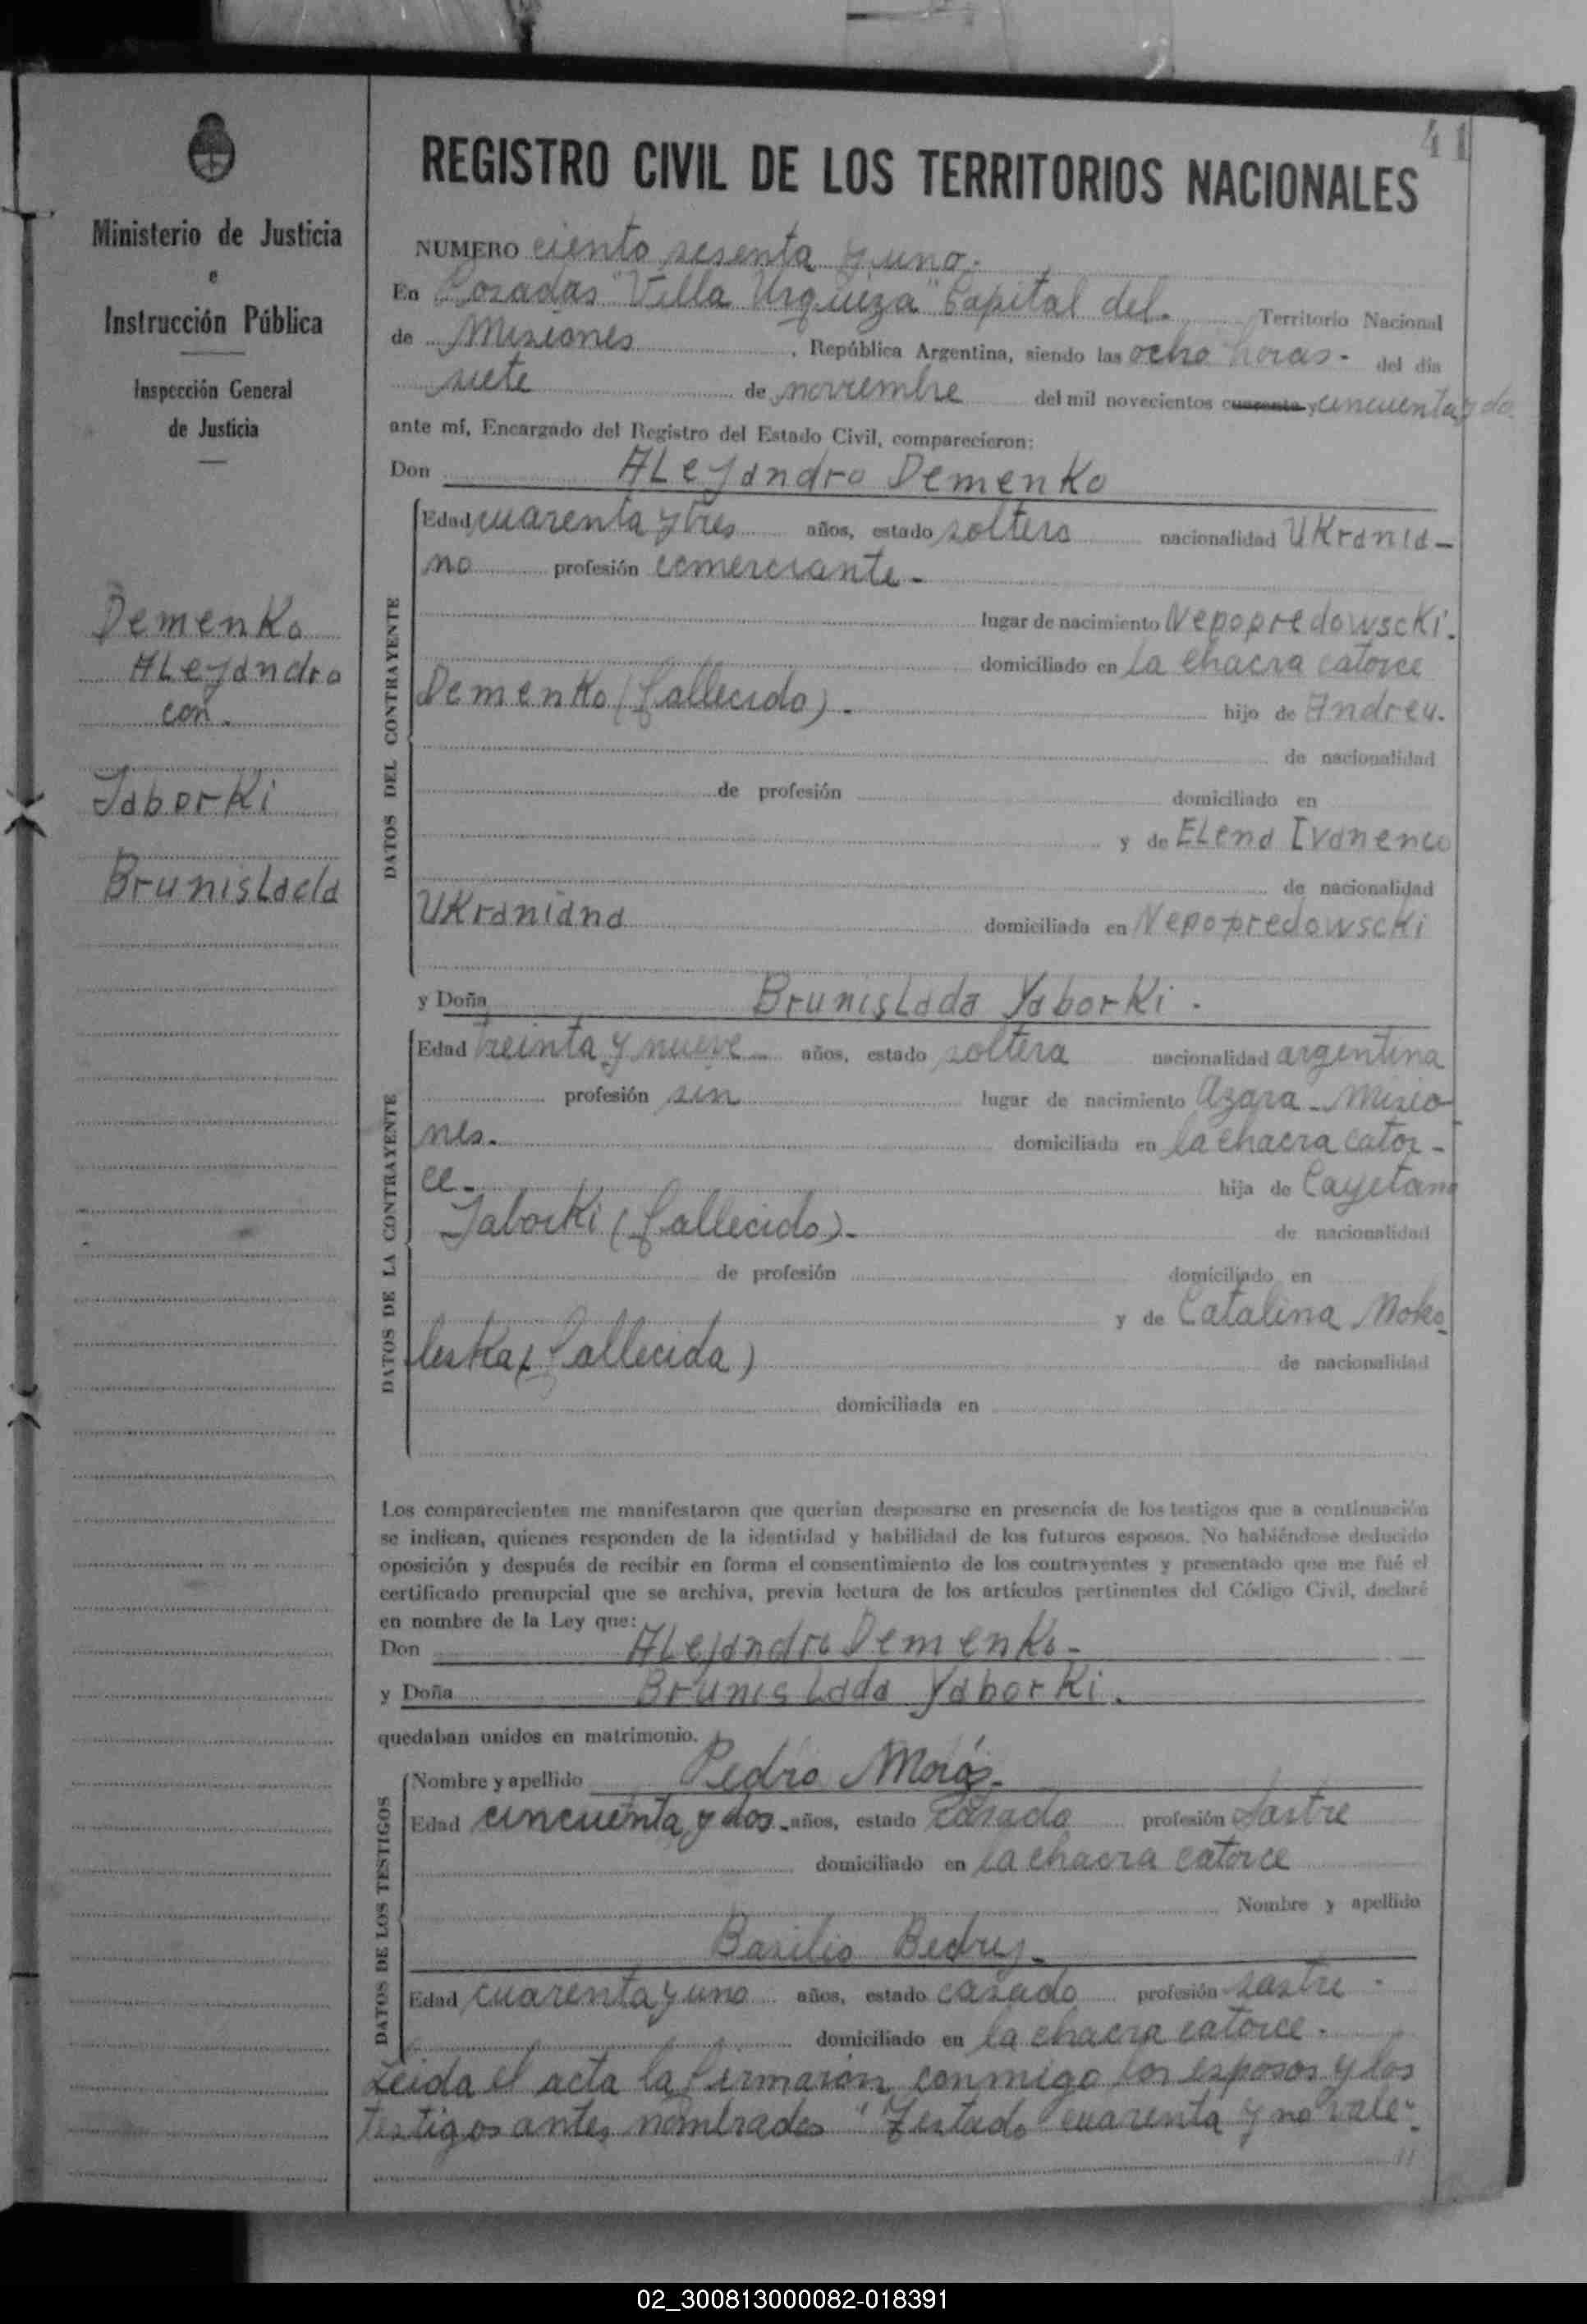 41
Ministerio de Justicia
e
Instrucción Pública
Inspección General
de Justicia
Demenko
ALejandro
con.
Jaborki
Brunislada
REGISTRO CIVIL DE LOS TERRITORIOS NACIONALES
NUMERO ciento sesenta y uno.
En Posadas "Villa Urquiza" Capital del. Territorio Nacional
de Misiones, República Argentina, siendo las ocho horas- del día
siete de noviembre del mil novecientos cuarenta y cincuenta y dos
ante mí, Encargado del Registro del Estado Civil, comparecieron:
Don ALejandro Demenko
DATOS DEL CONTRAYENTE
Edad cuarenta y tres años, estado soltero nacionalidad Ukrania-
no profesión comerciante-
lugar de nacimiento Nepopredowscki.
domiciliado en la chacra catorce
Demenko (fallecido). hijo de Andreu.
de nacionalidad
de profesión domiciliado en
y de ELena Ivanenco
de nacionalidad
Ukraniana domiciliada en Nepopredowscki
y Doña Brunislada Yaborki.
DATOS DE LA CONTRAYENTE
Edad treinta y nueve años, estado soltera nacionalidad argentina
profesión sin lugar de nacimiento Azara-Misio
nes. domiciliada en la chacra cator-
ce. hija de Cayetano
Jaborki (fallecido). de nacionalidad
de profesión domiciliado en
y de Catalina Moko
leska (fallecida) de nacionalidad
domiciliada en
Los comparecientes me manifestaron que querían desposarse en presencia de los testigos que a continuación
se indican, quienes responden de la identidad y habilidad de los futuros esposos. No habiéndose deducido
oposición y después de recibir en forma el consentimiento de los contrayentes y presentado que me fué el
certificado prenupcial que se archiva, previa lectura de los artículos pertinentes del Código Civil, declaré
en nombre de la Ley que:
Don ALejandro Demenko-
y Doña Brunislada Yaborki.
quedaban unidos en matrimonio.
DATOS DE LOS TESTIGOS
Nombre y apellido Pedro
Edad cincuenta y dos años, estado casado profesión Sastre
domiciliado en la chacra catorce
Nombre y apellido
Basilio Bedrij-
Edad cuarenta y uno años, estado casado profesión sastre-
domiciliado en la chacra catorce.
Leida el acta la firmaron conmigo los esposos y los
testigos antes nombrados "Testado cuarenta y no vale".
02_300813000082-018391